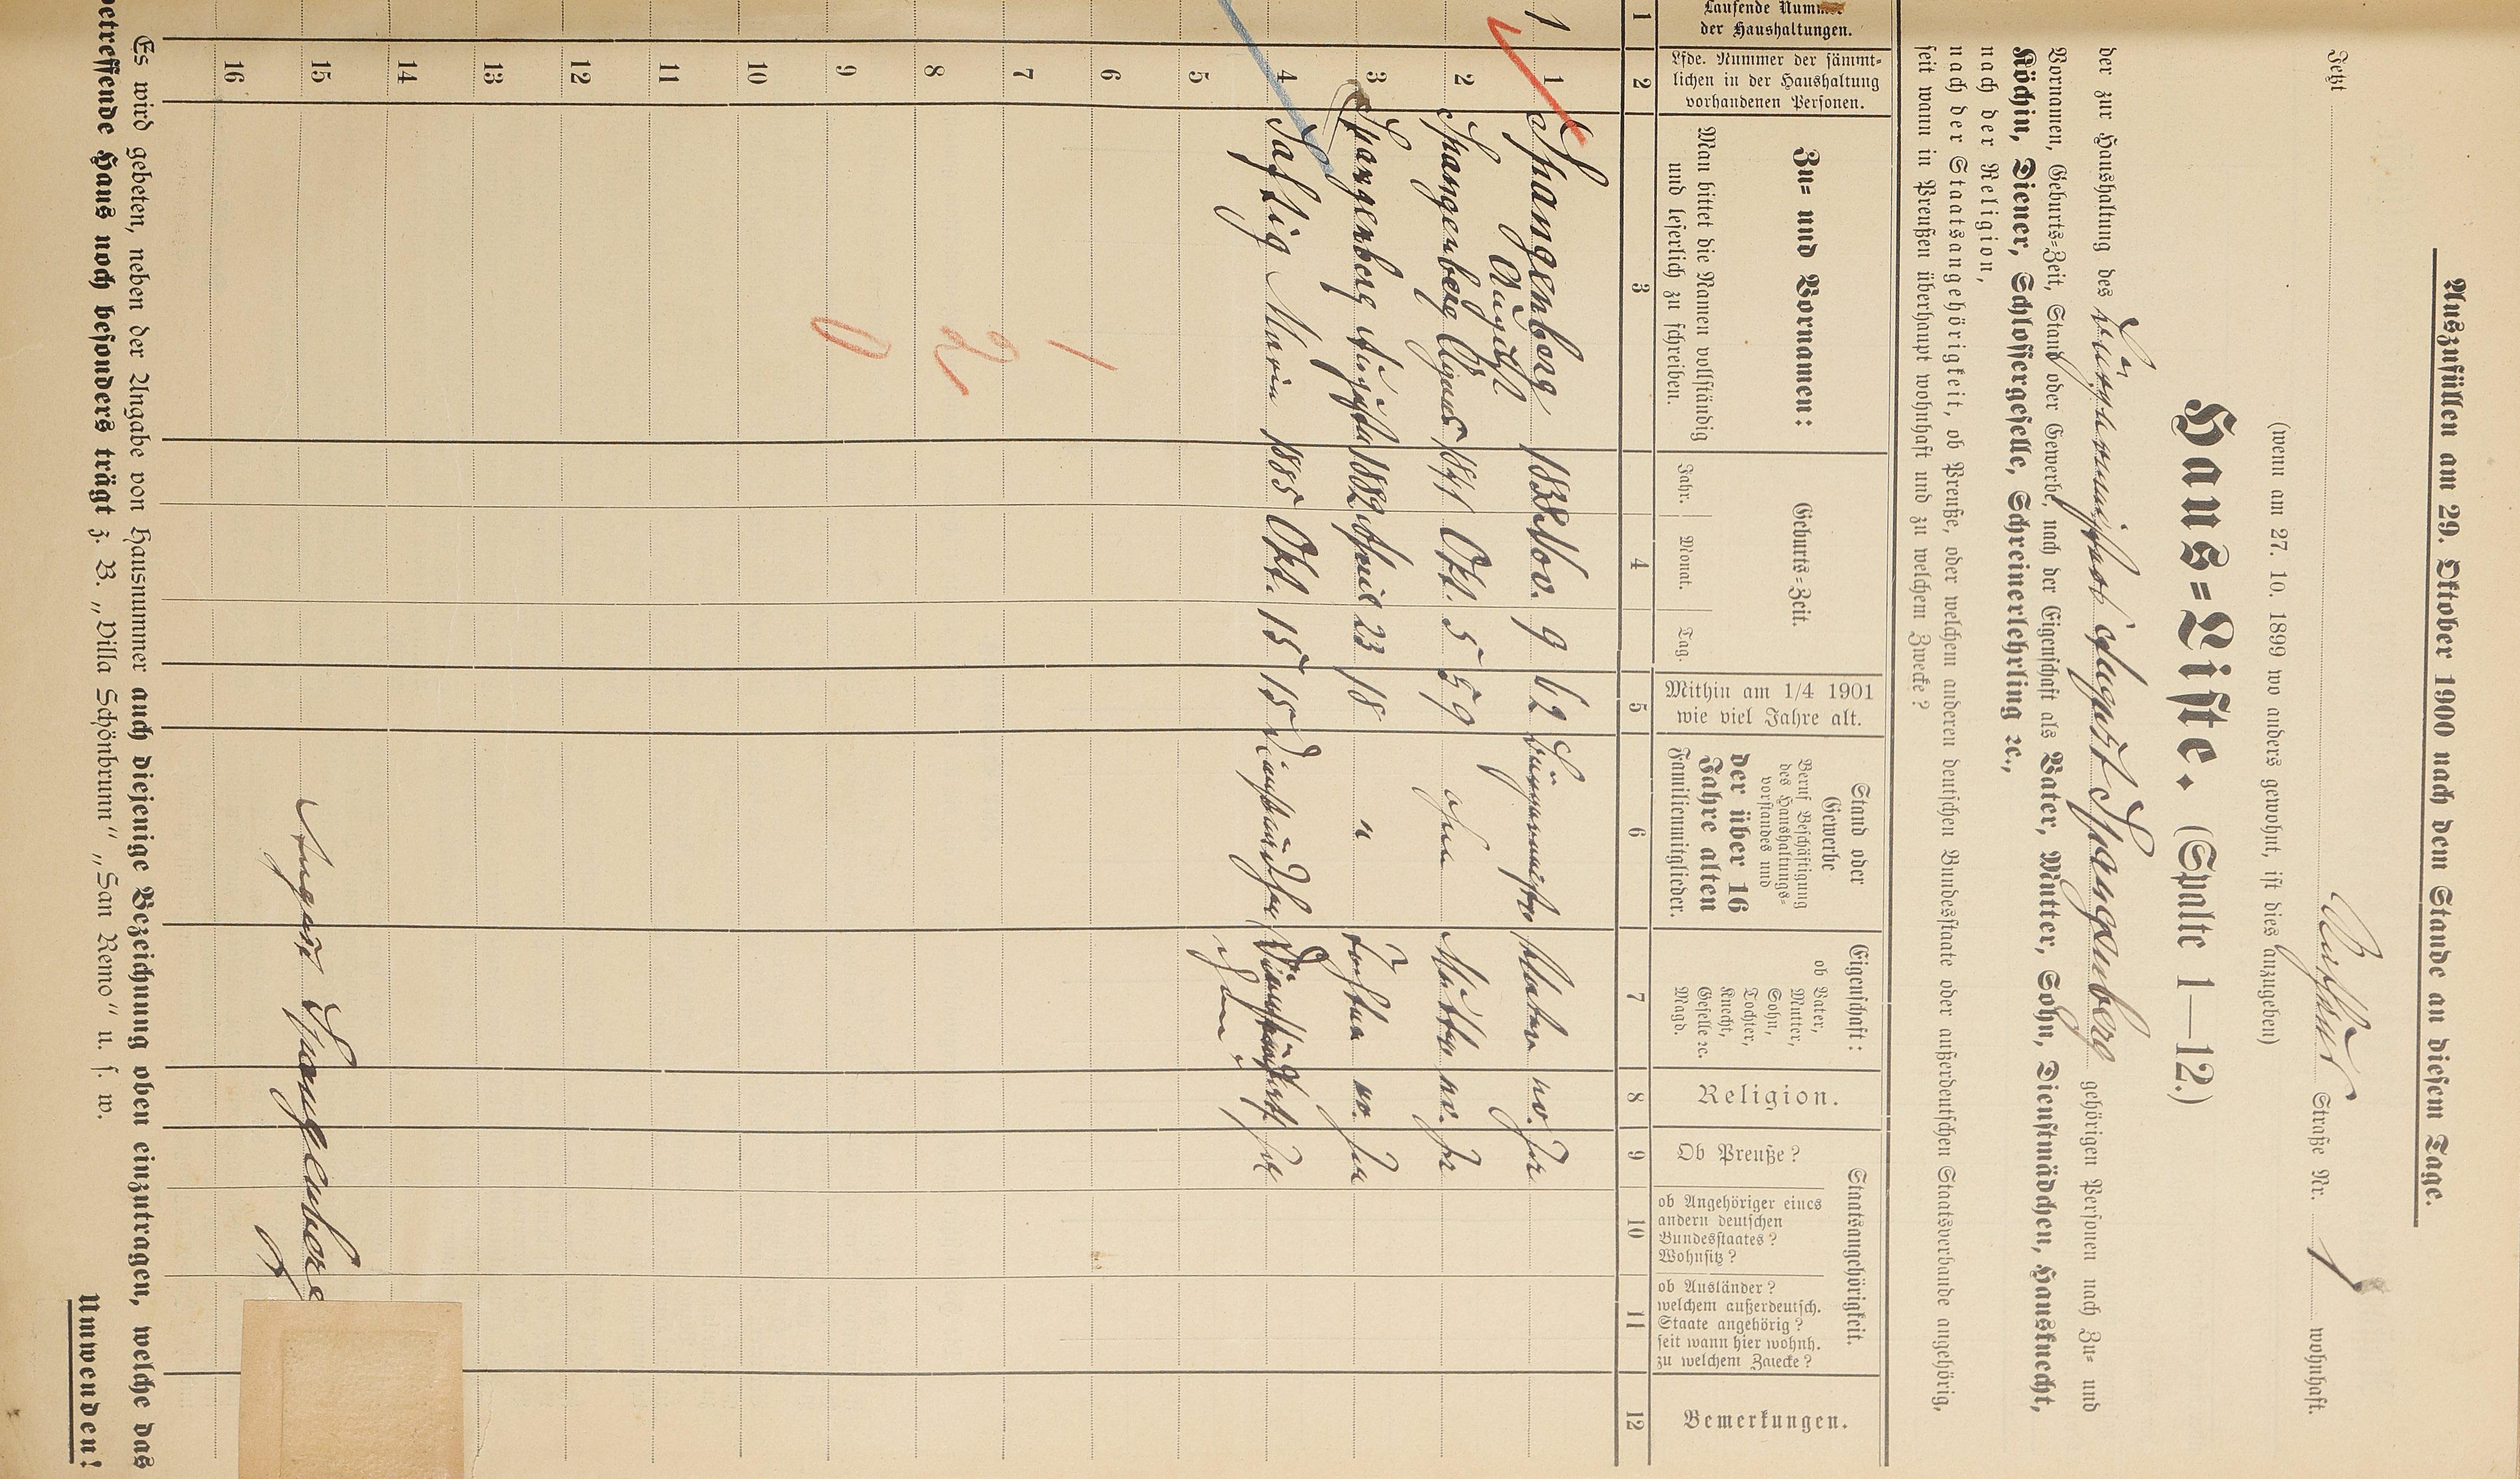 Auszufüllen am 29. Oktober 1900 nach dem Stande an diesem Tage.
Jetzt Straße Nr. 1 wohnhaft.
(wenn am 27. 10. 1899 wo anders gewohnt, ist dies anzugeben)
Haus=Liste. (Spalte 1—12.)
der zur Haushaltung des Bürgermeister August Spangenberg gehörigen Personen nach Zu= und
Vornamen, Geburts=Zeit, Stand oder Gewerbe, nach der Eigenschaft als Vater, Mutter, Sohn, Dienstmädchen, Hausknecht,
Köchin, Diener, Schlossergeselle, Schreinerlehrling ꝛc.,
nach der Religion,
nach der Staatsangehörigkeit, ob Preuße, oder welchem anderen deutschen Bundesstaate oder außerdeutschen Staatsverbande angehörig,
seit wann in Preußen überhaupt wohnhaft und zu welchem Zwecke?
Laufende Nummer
der Haushaltungen.
Lfde. Nummer der sämmt=
lichen in der Haushaltung
vorhandenen Personen.
Zu= und Vornamen:
Man bittet die Namen vollständig
und leserlich zu schreiben.
Geburts=Zeit.
Jahr. Monat. Tag.
Mithin am 1/4 1901
wie viel Jahre alt.
Stand oder
Gewerbe
Beruf Beschäftigung
des Haushaltungs=
vorstandes und
der über 16
Jahre alten
Familienmitglieder.
Eigenschaft:
ob Vater,
Mutter,
Sohn,
Tochter,
Knecht,
Geselle ꝛc.
Magd.
Religion.
Staatsangehörigkeit.
Ob Preuße?
ob Angehöriger eines
andern deutschen
Bundesstaates?
Wohnsitz?
ob Ausländer?
welchem außerdeutsch.
Staate angehörig?
seit wann hier wohnh.
zu welchem Zwecke?
Bemerkungen.
1 2 3 4 5 6 7 8 9 10 11 12
1 1 Spangenberg 1838 Nov. 9 62 Bürgermeister Vater ev. ja
August
2 Spangenberg Agnes 1841 Okt. 5 59 ohne Mutter ev. ja
3 Spangenberg Augusta 1882 April 23 18 " Tochter ev. ja
4 Marie 1885 Okt. 15 15 Dienstmädchen ja
5
6
7 1
8 2
9 0
10
11
12
13
14
15 August Spangenberg
16
Es wird gebeten, neben der Angabe von Hausnummer auch diejenige Bezeichnung oben einzutragen, welche das
betreffende Haus noch besonders trägt z. B. „Villa Schönbrunn" „San Remo" u. s. w.
Umwenden!